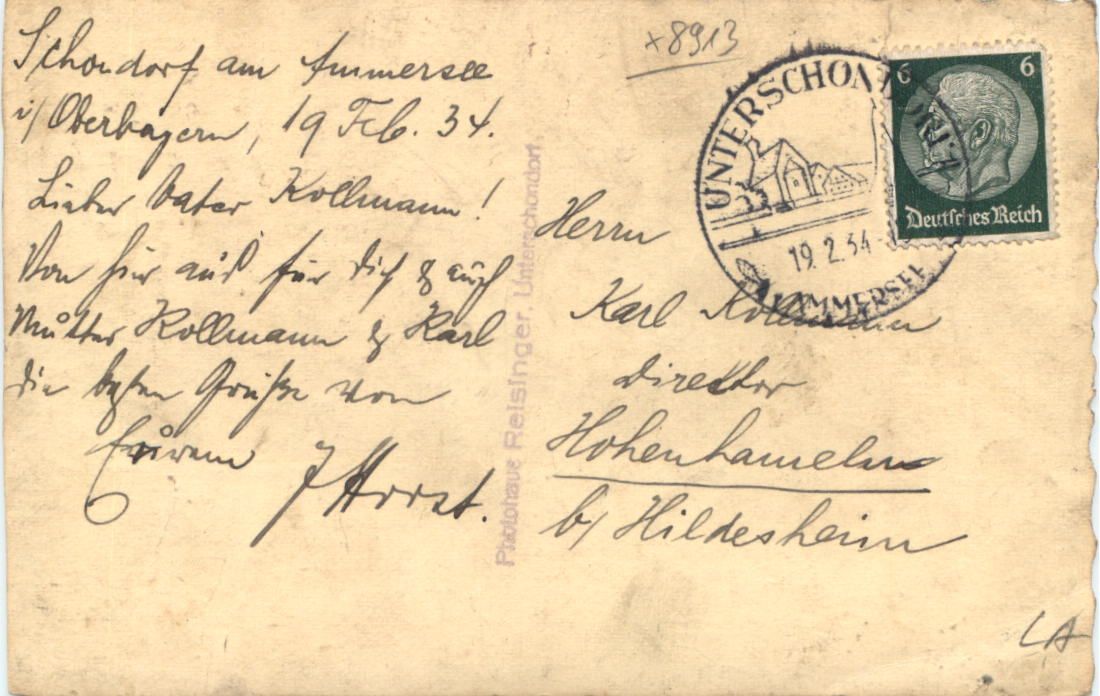 Schondorf am Ammersee
i/ Oberbayern, 19 Feb. 34.
Lieber Vater Kollmann!
Von hier aus für Dich & auch
Mutter Kollmann & Karl
die besten Grüße von
Eurem
Horst.
Photohaus Reisinger, Unterschondorf.
+8913
UNTERSCHONDORF
19.2.34
AMMERSEE
6 6
Deutsches Reich
Herrn
Karl Kollmann
Direktor
Hohenhameln
b/ Hildesheim
LA